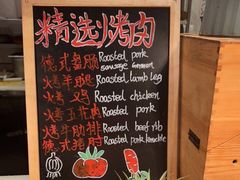 精选烤肉
德式香肠 Roasted pork
sausage German
烤羊腿 Roasted lamb leg
烤鸡 Roasted chicken
烤五花肉 Roasted pork
烤牛肋排 Roasted beef rib
德式猪肘 Roasted pork knuckle